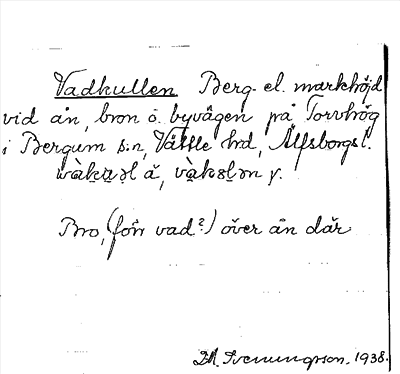 Vadkullen Berg- el. markhöjd
vid ån, bron o. byvägen på Torvhög
i Bergum s:n, Vättle hrd, Älfsborgs l.
Bro, (förr vad?) över ån där
Svenungsson. 1938.